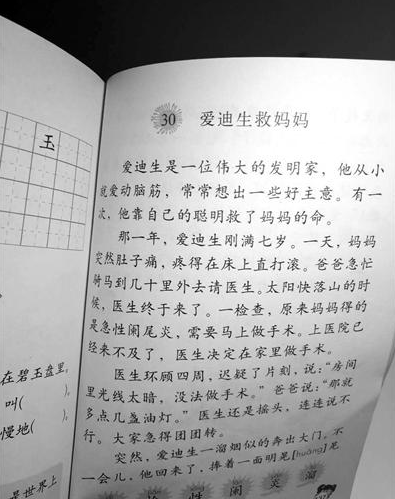 玉
在碧玉盘里,
叫( ),
慢地( )。
是世界上
30 爱迪生救妈妈
爱迪生是一位伟大的发明家,他从小
就爱动脑筋,常常想出一些好主意。有一
次,他靠自己的聪明救了妈妈的命。
那一年,爱迪生刚满七岁。一天,妈妈
突然肚子痛,疼得在床上直打滚。爸爸急忙
骑马到几十里外去请医生。太阳快落山的时
候,医生终于来了。一检查,原来妈妈得的
是急性阑尾炎,需要马上做手术。上医院已
经来不及了,医生决定在家里做手术。
医生环顾四周,迟疑了片刻,说:“房间
里光线太暗,没法做手术。”爸爸说:“那就
多点几盏油灯。”医生还是摇头,连连说不
行。大家急得团团转。
突然,爱迪生一溜烟似的奔出大门。不
一会儿,他回来了,捧着一面明晃[huǎng]晃
性 阑 炎 溜